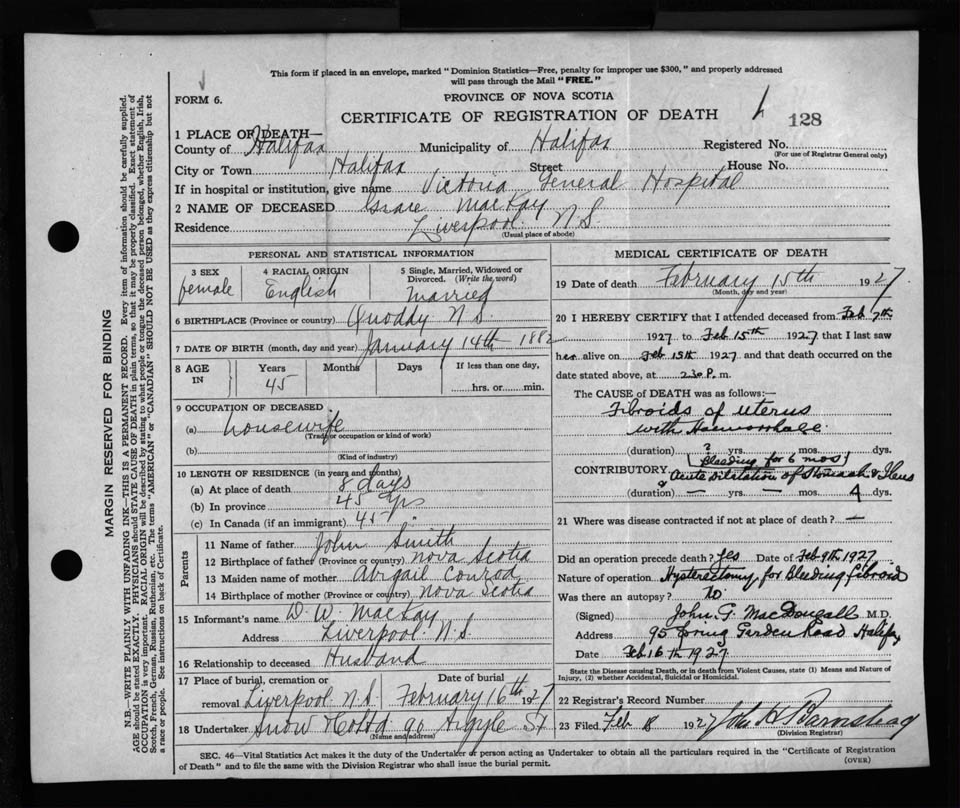 This form if placed in an envelope, marked "Dominion Statistics—Free, penalty for improper use $300," and properly addressed
will pass through the Mail "FREE."
FORM 6.
PROVINCE OF NOVA SCOTIA
CERTIFICATE OF REGISTRATION OF DEATH
128
1 PLACE OF DEATH—
County of Halifax Municipality of Halifax Registered No.
(For use of Registrar General only)
City or Town Halifax Street House No.
If in hospital or institution, give name Victoria General Hospital
2 NAME OF DECEASED Grace MacKay
Residence Liverpool N.S.
(Usual place of abode)
PERSONAL AND STATISTICAL INFORMATION
3 SEX 4 RACIAL ORIGIN 5 Single, Married, Widowed or
Divorced. (Write the word)
female English Married
6 BIRTHPLACE (Province or country) Quoddy N.S.
7 DATE OF BIRTH (month, day and year) January 14th 1882
8 AGE IN Years Months Days If less than one day,
45 hrs. or min.
9 OCCUPATION OF DECEASED
(a) housewife
(Trade or occupation or kind of work)
(b)
(Kind of industry)
10 LENGTH OF RESIDENCE (in years and months)
(a) At place of death 8 days
(b) In province 45 yrs
(c) In Canada (if an immigrant) 45
Parents
11 Name of father John Smith
12 Birthplace of father (Province or country) Nova Scotia
13 Maiden name of mother Abigail Conrod
14 Birthplace of mother (Province or country) Nova Scotia
15 Informant's name D. W. MacKay
Address Liverpool N.S.
16 Relationship to deceased Husband
17 Place of burial, cremation or Date of burial
removal Liverpool N.S. February 16th 1927
18 Undertaker Snow & Co Ltd 90 Argyle St
(Name and address)
MEDICAL CERTIFICATE OF DEATH
19 Date of death February 15th 1927
(Month, day and year)
20 I HEREBY CERTIFY that I attended deceased from Feb 7th
1927 to Feb 15th 1927 that I last saw
her alive on Feb 15th 1927 and that death occurred on
date stated above, at 2.30 P. m.
The CAUSE of DEATH was as follows:—
Fibroids of uterus
with Haemorrhage
(duration) ? yrs. mos. dys.
(Bleeding for 6 mos)
CONTRIBUTORY Acute Dilitation of Stomach & Ileus
(duration) — yrs. — mos. 4 dys.
21 Where was disease contracted if not at place of death? —
Did an operation precede death? Yes Date of Feb 9th 1927
Nature of operation Hysterectomy for Bleeding fibroid
Was there an autopsy? No
(Signed) John G. MacDougall M.D.
Address 95 Spring Garden Road Halifax
Date Feb 16th 1927
State the Disease causing Death, or in death from Violent Causes, state (1) Means and Nature of
Injury, (2) whether Accidental, Suicidal or Homicidal.
22 Registrar's Record Number
23 Filed Feb 1927 John H Barnstead
(Division Registrar)
SEC. 46—Vital Statistics Act makes it the duty of the Undertaker or person acting as Undertaker to obtain all the particulars required in the "Certificate of Registration
of Death" and to file the same with the Division Registrar who shall issue the burial permit.
(OVER)
MARGIN RESERVED FOR BINDING
N.B.—WRITE PLAINLY WITH UNFADING INK—THIS IS A PERMANENT RECORD. Every item of information should be carefully supplied.
AGE should be stated EXACTLY. PHYSICIANS should STATE CAUSE OF DEATH in plain terms, so that it may be properly classified. Exact statement of
OCCUPATION is very important. RACIAL ORIGIN will be described by stating to what people or tongue the deceased person belonged, whether English, Irish,
Scotch, French, German, Russian, Ruthenian, etc. The terms "AMERICAN" or "CANADIAN" SHOULD NOT BE USED as they express citizenship but not
a race or people. See instructions on back of Certificate.